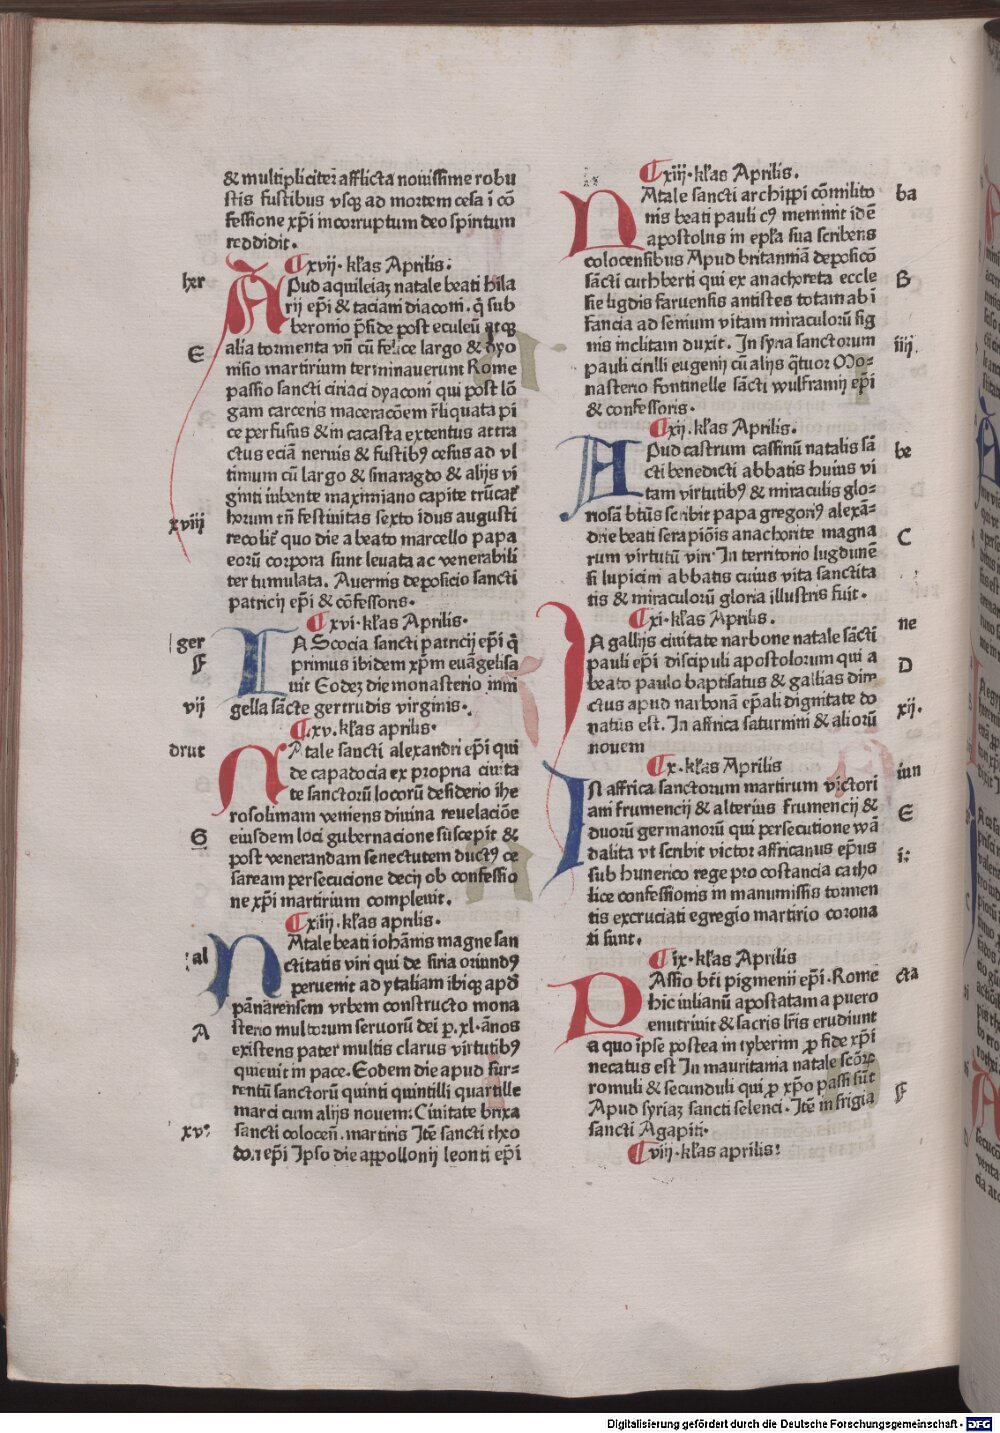 & multipliciter afflicta nouissime robu
stis fustibus vsq̄ ad mortem cesa i cō
fessione xp̄i incorruptum deo spiritum
reddidit.
¶xvii. kl'as Aprilis.
her
APud aquileiaȝ natale beati hila
rii ep̄i & taciani diaconi. q̄ sub
beronio p̄side post eculeū atqȝ
E
alia tormenta vn̄ cū felice largo & dyo
nisio martirium terminauerunt Rome
passio sancti ciriaci dyaconi qui post lō
gam carceris maceracōem r̄liquata pi
ce perfusus & in cacasta extentus attra
ctus eciā neruis & fustibꝰ cesus ad vl
timum cū largo & smaragdo & alijs vi
ginti iubente maximiano capite trūcat'
xviij
horum tn̄ festiuitas sexto idus augusti
recolit' quo die a beato marcello papa
eorū corpora sunt leuata ac venerabili
ter tumulata. Auernis deposicio sancti
patricij ep̄i & cōfessoris.
¶xvi. kl'as Aprilis.
ger
IN Scocia sancti patricij ep̄i q̄
F
primus ibidem xp̄m euāgelisa
uit Eodeȝ die monasterio niui
vij
gella sācte gertrudis virginis.
¶xv. kl'as aprilis.
drut
NAtale sancti alexandri ep̄i qui
de capadocia ex propria ciuita
te sanctorū locorū desiderio ihe
rosolimam veniens diuina reuelaciōe
G
eiusdem loci gubernacione suscepit &
post venerandam senectutem ductꝰ ce
saream persecucione decij ob confessio
ne xp̄i martirium compleuit.
¶xiiij. kl'as aprilis.
al
NAtale beati iohānis magne san
ctitatis viri qui de siria oriundꝰ
peruenit ad ytaliam ibiqȝ apd̄
pānarensem vrbem constructo mona
A
sterio multorum seruorū dei p. xl. ānos
existens pater multis clarus virtutibꝰ
quieuit in pace. Eodem die apud sur-
rentū sanctorū quinti quintilli quartille
marci cum alijs nouem. Ciuitate brixa
xvꝰ
sancti colocen̄. martiris Itē sancti theo
do.i ep̄i Ipso die appollonij leonti ep̄i
¶xiii. kl'as Aprilis.
ba
NAtale sancti archippi cōmilito
nis beati pauli cꝰ meminit idē
apostolus in ep̄la sua scribens
colocensibus Apud britanniā deposicō
B
sācti cuthberti qui ex anachoreta eccle
sie ligdis faruensis antistes totam ab i
fancia ad senium vitam miraculorū sig
nis inclitam duxit. In syria sanctorum
iiij.
pauli cirilli eugenij cū alijs q̄tuor Mo-
nasterio fontinelle sācti wulframij ep̄i
& confessoris.
¶xij. kl'as Aprilis.
be
APud castrum cassinū natalis sā
cti benedicti abbatis huius vi
tam virtutibꝰ & miraculis glo-
riosā bt̄us scribit papa gregoriꝰ alexā-
C
drie beati serapiōis anachorite magna
rum virtutū viri In territorio lugdunē
si lupicini abbatis cuius vita sanctita
tis & miraculorū gloria illustris fuit.
¶xi. kl'as Aprilis.
ne
IN gallijs ciuitate narbone natale sācti
pauli ep̄i discipuli apostolorum qui a
D
beato paulo baptisatus & gallias dire
ctus apud narbonā ep̄ali dignitate do
xij.
natus est. In affrica saturnini & aliorū
nouem
¶x. kl'as Aprilis
iun
IN affrica sanctorum martirum victori
ani frumencij & alterius frumencij &
E
duorū germanorū qui persecutione wā
dalita vt scribit victor affricanus ep̄us
i:
sub hunerico rege pro costancia catho
lice confessionis in manumissis tormen
tis excruciati egregio martirio corona
ti sunt.
¶ix. kl'as Aprilis
cta
PAssio bt̄i pigmenii ep̄i. Rome
hic iulianū apostatam a puero
enutriuit & sacris lr̄is erudiunt
a quo ipse postea in tyberim p̱ fide xp̄i
necatus est In mauritania natale scōrꝝ
romuli & secunduli qui p̱ xp̄o passi sūt
F
Apud syriaȝ sancti seleuci. Itē in frigia
sancti Agapiti.
¶viij. kl'as aprilis:
Digitalisierung gefördert durch die Deutsche Forschungsgemeinschaft - DFG